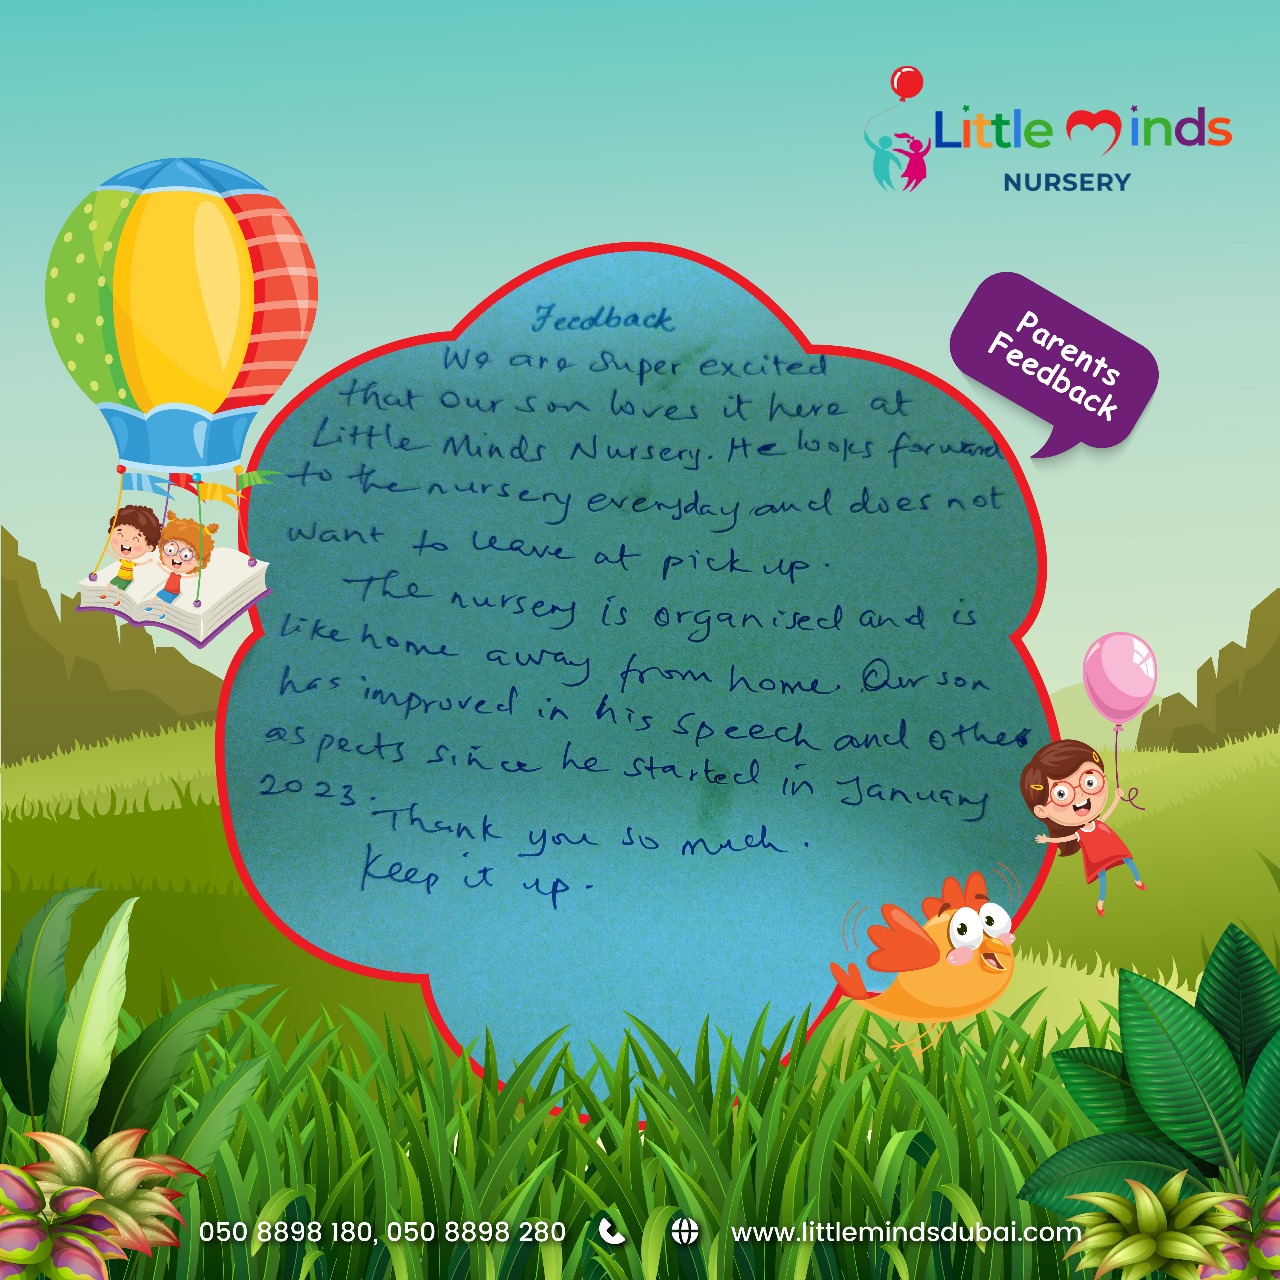 Little Minds
NURSERY
Parents
Feedback
Feedback
We are super excited
that our son loves it here at
Little Minds Nursery. He looks forward
to the nursery everyday and does not
want to leave at pick up.
The nursery is organised and is
like home away from home. Our son
has improved in his speech and other
aspects since he started in January
2023.
Thank you so much.
Keep it up.
050 8898 180, 050 8898 280 www.littlemindsdubai.com